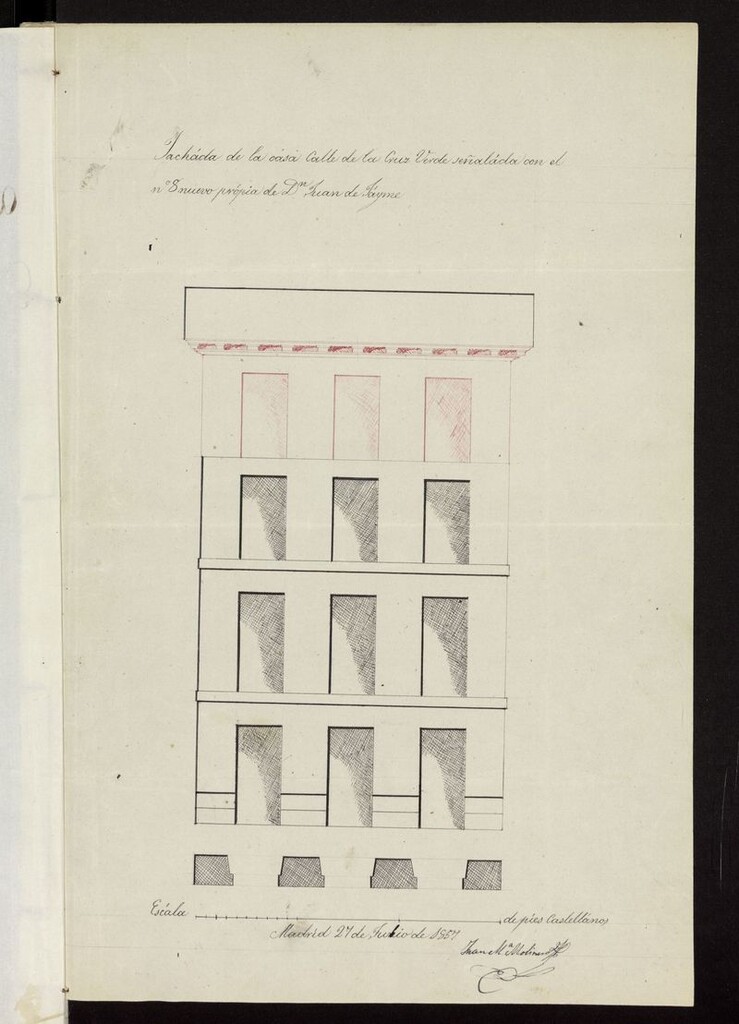 Facháda de la cása Calle de la Cruz Vérde señaláda con el
nº 8 nuevo própia de Dn Juan de Jáyme
Escála de pies Castellános
Madrid 27 de Julio de 1857
Juan Mª